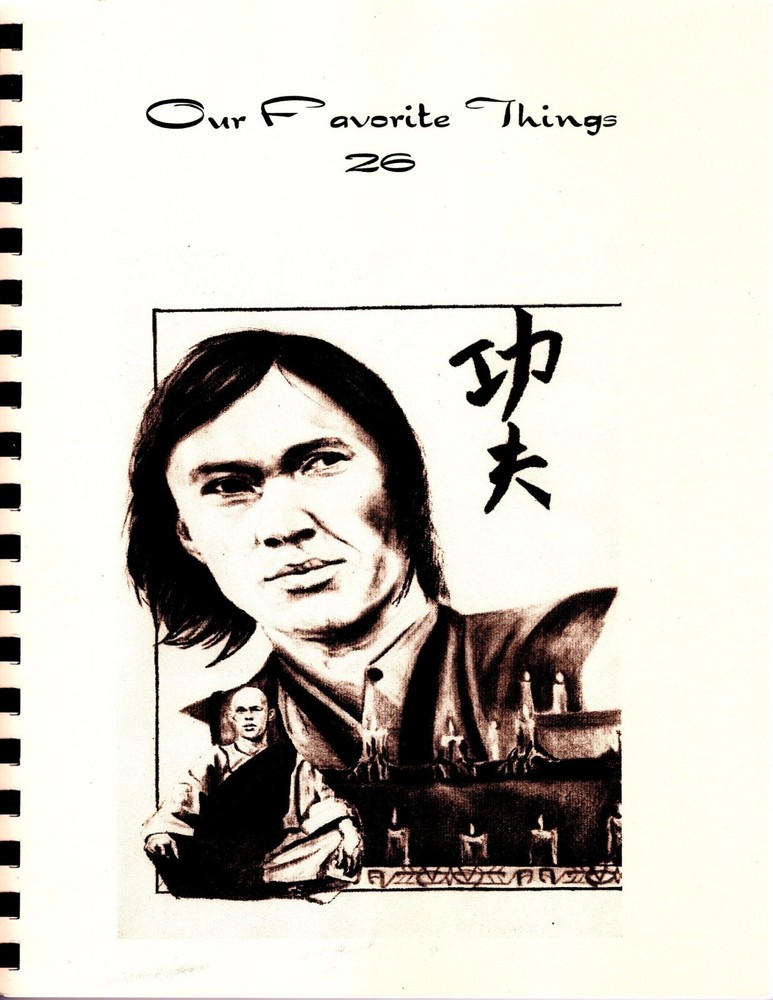 Our Favorite Things
26
功
夫